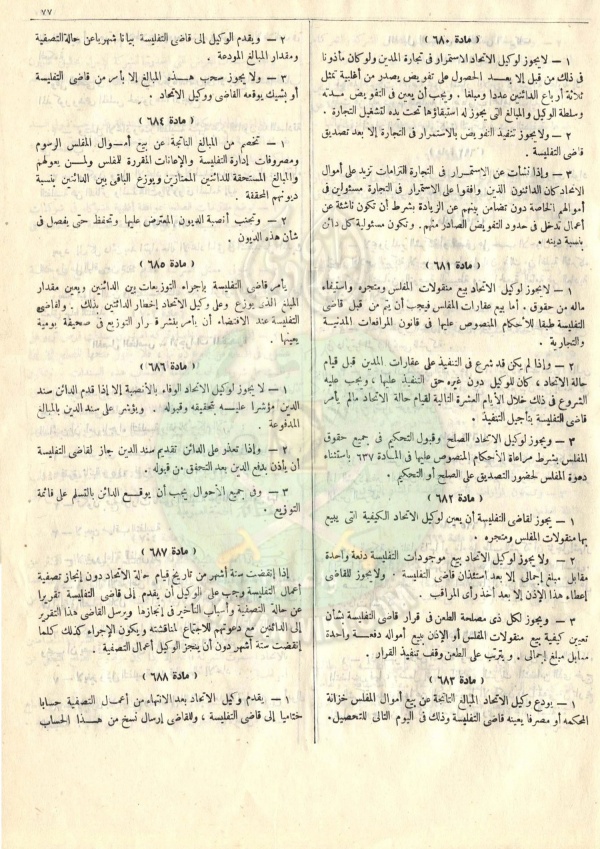 ٧٧
( مادة ٦٨٠ )
١ — لا يجوز لوكيل الاتحاد الاستمرار فى تجارة المدين ولو كان مأذونا
فى ذلك من قبل إلا بعد الحصول على تفويض يصدر من أغلبية تمثل
ثلاثة أرباع الدائنين عددا ومبلغا . ويجب أن يعين فى التفويض مدته
وسلطة الوكيل والمبالغ التى يجوز له استيفاؤها تحت يده لتشغيل التجارة .
٢ — ولا يجوز تنفيذ التفويض بالاستمرار فى التجارة إلا بعد تصديق
قاضى التفليسة .
٣ — وإذا نشأت عن الاستمرار فى التجارة التزامات تزيد على أموال
الاتحاد كان الدائنون الذين وافقوا على الاستمرار فى التجارة مسئولين فى
أموالهم الخاصة دون تضامن بينهم عن الزيادة بشرط أن تكون ناشئة عن
أعمال تدخل فى حدود التفويض الصادر منهم . وتكون مسئولية كل دائن
بنسبة دينه .
( مادة ٦٨١ )
١ — لا يجوز لوكيل الاتحاد بيع منقولات المفلس ومتجره واستيفاء
ماله من حقوق . أما بيع عقارات المفلس فيجب أن يتم من قبل قاضى
التفليسة طبقا للأحكام المنصوص عليها فى قانون المرافعات المدنية
والتجارية .
٢ — وإذا لم يكن قد شرع فى التنفيذ على عقارات المدين قبل قيام
حالة الاتحاد ، كان للوكيل دون غيره حق التنفيذ عليها ، ويجب عليه
الشروع فى ذلك خلال الأيام العشرة التالية لقيام حالة الاتحاد مالم يأمر
قاضى التفليسة بتأجيل التنفيذ .
٣ — ويجوز لوكيل الاتحاد الصلح وقبول التحكيم فى جميع حقوق
المفلس بشرط مراعاة الأحكام المنصوص عليها فى المادة ٦٣٧ باستثناء
دعوة المفلس لحضور التصديق على الصلح أو التحكيم .
( مادة ٦٨٢ )
١ — يجوز لقاضى التفليسة أن يعين لوكيل الاتحاد الكيفية التى يبيع
بها منقولات المفلس ومتجره .
٢ — ولا يجوز لوكيل الاتحاد بيع موجودات التفليسة دفعة واحدة
مقابل مبلغ إجمالى إلا بعد استئذان قاضى التفليسة . ولا يجوز للقاضى
إعطاء هذا الإذن إلا بعد أخذ رأى المراقب .
٣ — ويجوز لكل ذى مصلحة الطعن فى قرار قاضى التفليسة بشأن
تعيين كيفية بيع منقولات المفلس أو الإذن ببيع أمواله دفعة واحدة
مقابل مبلغ إجمالى . ويترتب على الطعن وقف تنفيذ القرار .
( مادة ٦٨٣ )
١ — يودع وكيل الاتحاد المبالغ الناتجة عن بيع أموال المفلس خزانة
المحكمة أو مصرفا يعينه قاضى التفليسة وذلك فى اليوم التالى للتحصيل .
٢ — ويقدم الوكيل إلى قاضى التفليسة بيانا شهريا عن حالة التصفية
ومقدار المبالغ المودعة .
٣ — ولا يجوز سحب هذه المبالغ إلا بأمر من قاضى التفليسة
أو بشيك يوقعه القاضى ووكيل الاتحاد .
( مادة ٦٨٤ )
١ — تخصم من المبالغ الناتجة عن بيع أموال المفلس الرسوم
ومصروفات إدارة التفليسة والإعانات المقررة للمفلس ولمن يعولهم
والمبالغ المستحقة للدائنين الممتازين ويوزع الباقى بين الدائنين بنسبة
ديونهم المحققة .
٢ — وتجنب أنصبة الديون المعترض عليها وتحفظ حتى يفصل فى
شأن هذه الديون .
( مادة ٦٨٥ )
يأمر قاضى التفليسة بإجراء التوزيعات بين الدائنين ويعين مقدار
المبلغ الذى يوزع وعلى وكيل الاتحاد إخطار الدائنين بذلك . ولقاضى
التفليسة عند الاقتضاء أن يأمر بنشر قرار التوزيع فى صحيفة يومية
يعينها .
( مادة ٦٨٦ )
١ — لا يجوز لوكيل الاتحاد الوفاء بالأنصبة إلا إذا قدم الدائن سند
الدين مؤشرا عليه بتحقيقه وقبوله . ويؤشر على سند الدين بالمبالغ
المدفوعة .
٢ — وإذا تعذر على الدائن تقديم سند الدين جاز لقاضى التفليسة
أن يأذن بدفع الدين بعد التحقق من قبوله .
٣ — وفى جميع الأحوال يجب أن يوقع الدائن بالتسلم على قائمة
التوزيع .
( مادة ٦٨٧ )
إذا انقضت ستة أشهر من تاريخ قيام حالة الاتحاد دون إنجاز تصفية
أعمال التفليسة وجب على الوكيل أن يقدم إلى قاضى التفليسة تقريرا
عن حالة التصفية وأسباب التأخر فى إنجازها ويرسل القاضى هذا التقرير
إلى الدائنين مع دعوتهم للاجتماع لمناقشته ويكون الإجراء كذلك كلما
انقضت ستة أشهر دون أن ينجز الوكيل أعمال التصفية .
( مادة ٦٨٨ )
١ — يقدم وكيل الاتحاد بعد الانتهاء من أعمال التصفية حسابا
ختاميا إلى قاضى التفليسة ، وللقاضى إرسال نسخ من هذا الحساب